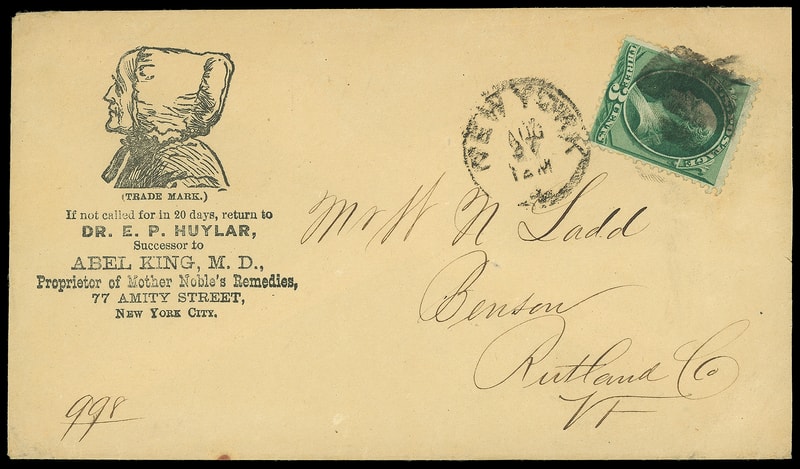 (TRADE MARK.)
If not called for in 20 days, return to
DR. E. P. HUYLAR,
Successor to
ABEL KING, M. D.,
Proprietor of Mother Noble's Remedies,
77 AMITY STREET,
NEW YORK CITY.
NEW YORK
AUG
12 M
THREE 3 CENTS
POSTAGE
Mr W N Ladd
Benson
Rutland Co
Vt
998